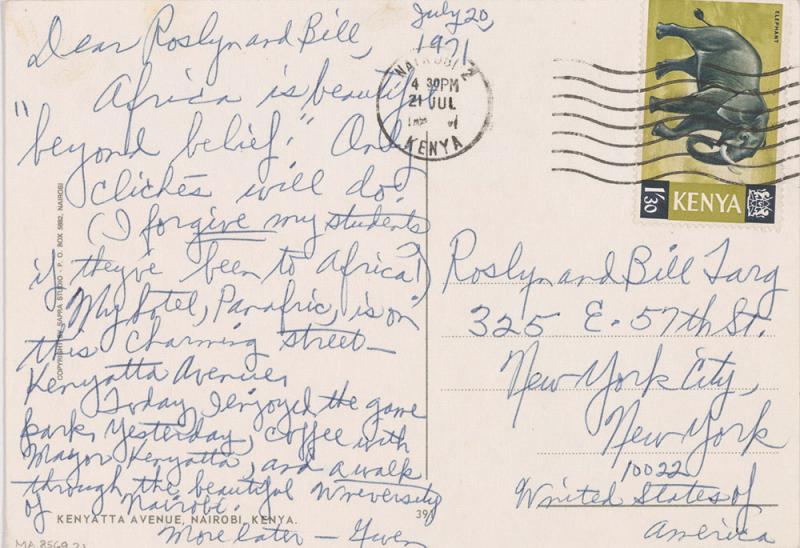 July 20,
1971
Dear Roslyn and Bill,
Africa is beautiful
"beyond belief." Only
clichés will do.
(I forgive my students
if they've been to Africa!)
My hotel, Panafric, is on
this charming street—
Kenyatta Avenue.
Today, I enjoyed the game
park, Yesterday, coffee with
Mayor Kenyatta, and a walk
through the beautiful University
of Nairobi.
More later — Gwen
KENYATTA AVENUE, NAIROBI, KENYA.
391
MA 8569.21
COPYRIGHT BY SAPRA STUDIO - P. O. BOX 5882, NAIROBI
NAIROBI 2
4 30PM
21 JUL
KENYA
ELEPHANT
1/30 KENYA
Roslyn and Bill Targ
325 E. 57th St.
New York City,
New York
10022
United States of
America